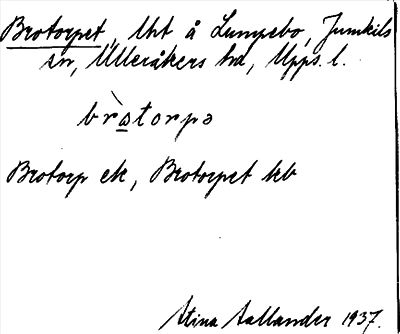 Brotorpet, lht å Lumpebo, Jumkils
sn, Ulleråkers hd, Upps. l.
bròtorpə
Brotorp ek, Brotorpet kb
Stina Aallander 1937.